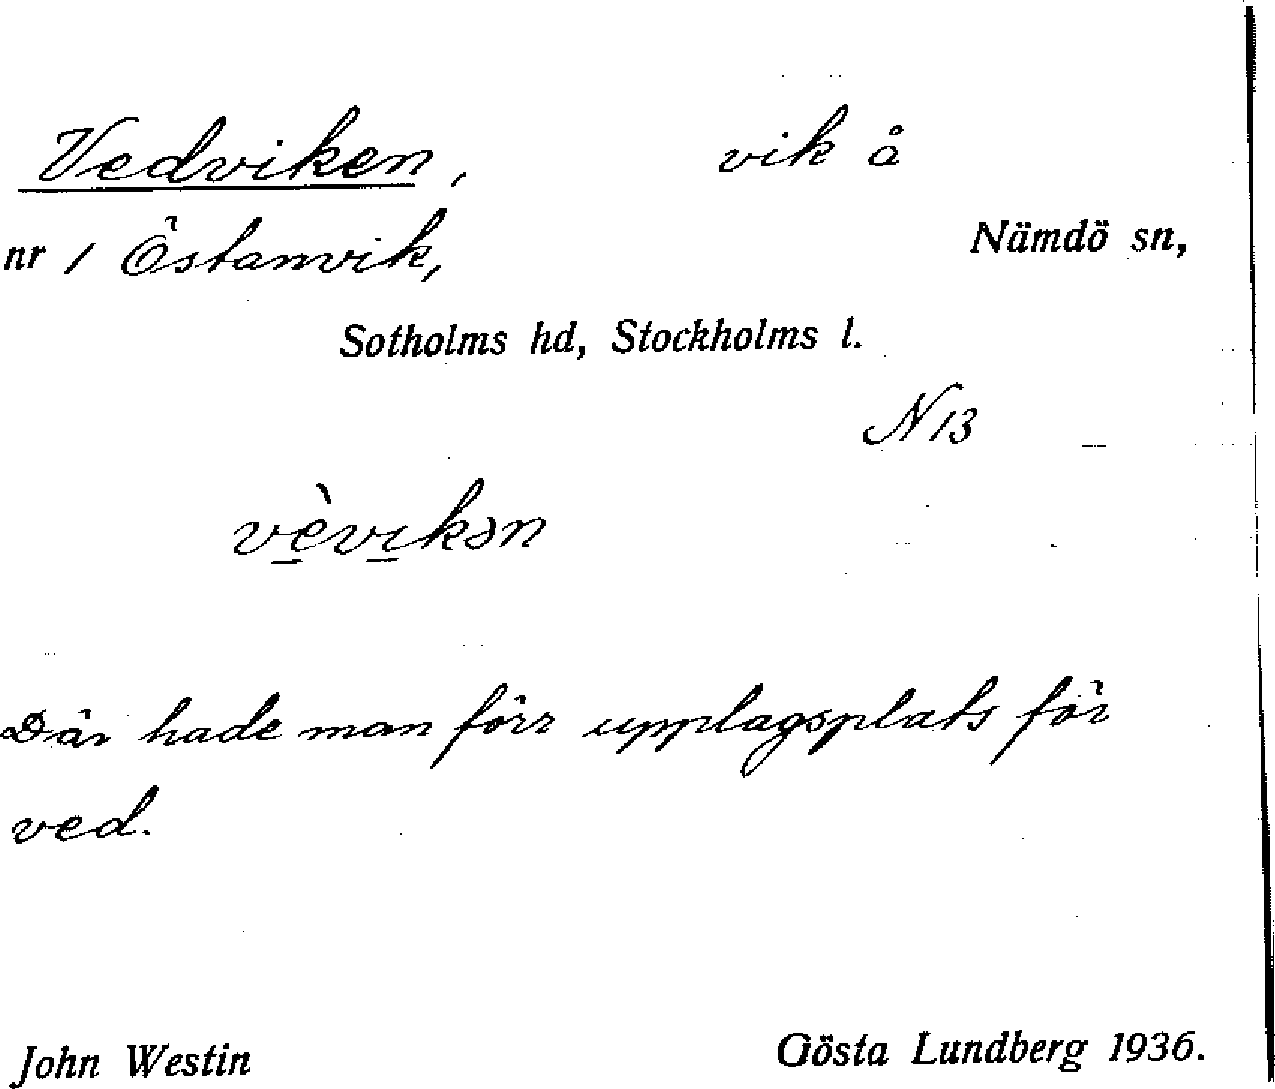 Vedviken, vik å
nr 1 Östanvik, Nämdö sn,
Sotholms hd, Stockholms l.
N 13
vèvikən
Där hade man förr upplagsplats för
ved.
John Westin Gösta Lundberg 1936.